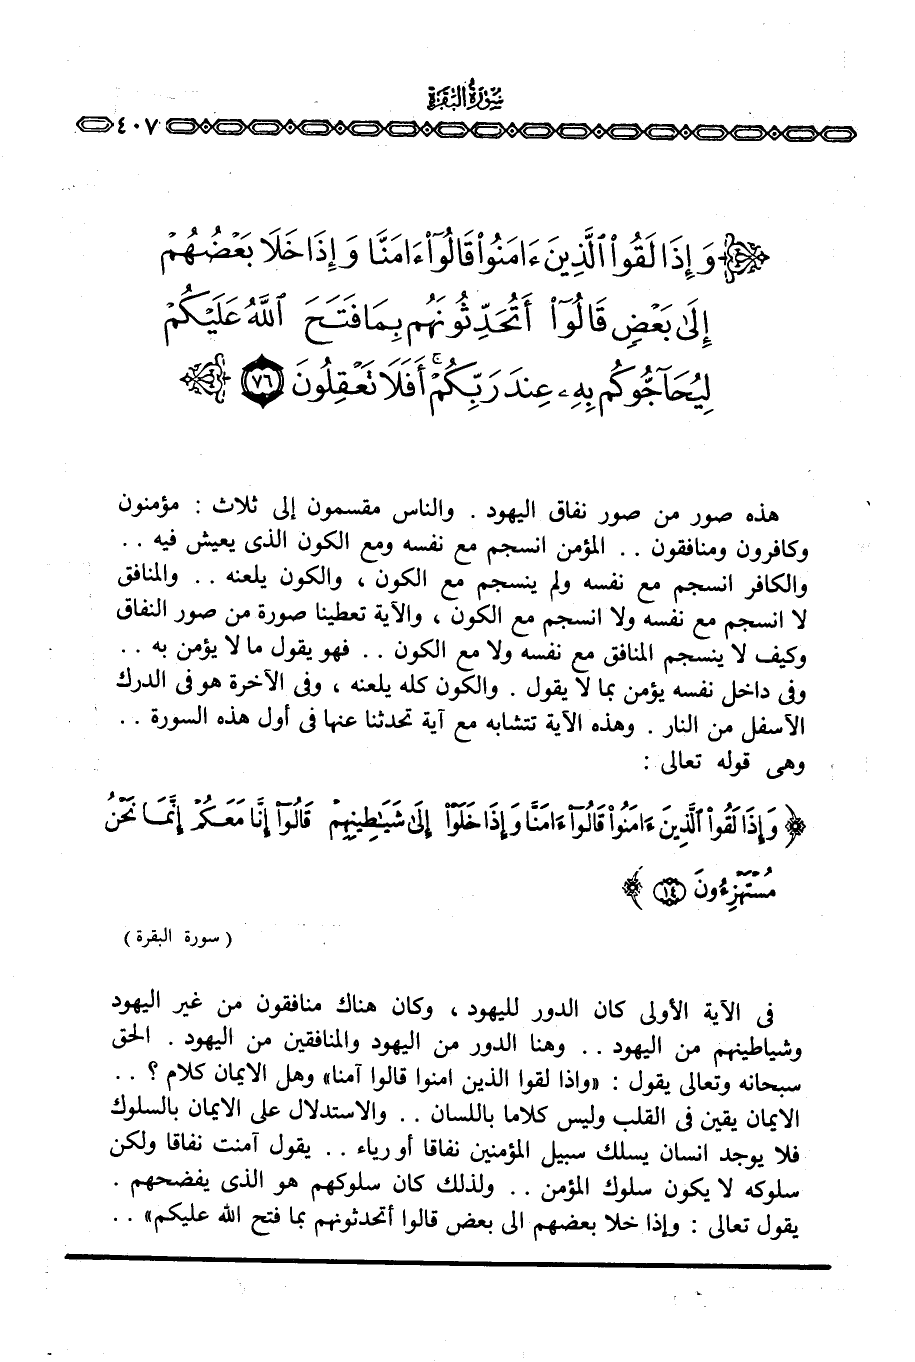 سورة البقرة
٤٠٧
وَإِذَا لَقُوا۟ ٱلَّذِينَ ءَامَنُوا۟ قَالُوٓا۟ ءَامَنَّا وَإِذَا خَلَا بَعْضُهُمْ
إِلَىٰ بَعْضٍ قَالُوٓا۟ أَتُحَدِّثُونَهُم بِمَا فَتَحَ ٱللَّهُ عَلَيْكُمْ
لِيُحَآجُّوكُم بِهِۦ عِندَ رَبِّكُمْ ۚ أَفَلَا تَعْقِلُونَ ٧٦
هذه صور من صور نفاق اليهود . والناس مقسمون إلى ثلاث : مؤمنون
وكافرون ومنافقون . . المؤمن انسجم مع نفسه ومع الكون الذى يعيش فيه . .
والكافر انسجم مع نفسه ولم ينسجم مع الكون ، والكون يلعنه . . والمنافق
لا انسجم مع نفسه ولا انسجم مع الكون ، والآية تعطينا صورة من صور النفاق
وكيف لا ينسجم المنافق مع نفسه ولا مع الكون . . فهو يقول ما لا يؤمن به . .
وفى داخل نفسه يؤمن بما لا يقول . والكون كله يلعنه ، وفى الآخرة هو فى الدرك
الآسفل من النار . وهذه الآية تتشابه مع آية تحدثنا عنها فى أول هذه السورة . .
وهى قوله تعالى :
﴿ وَإِذَا لَقُوا۟ ٱلَّذِينَ ءَامَنُوا۟ قَالُوٓا۟ ءَامَنَّا وَإِذَا خَلَوْا۟ إِلَىٰ شَيَٰطِينِهِمْ قَالُوٓا۟ إِنَّا مَعَكُمْ إِنَّمَا نَحْنُ
مُسْتَهْزِءُونَ ١٤ ﴾
( سورة البقرة )
فى الآية الأولى كان الدور لليهود ، وكان هناك منافقون من غير اليهود
وشياطينهم من اليهود . . وهنا الدور من اليهود والمنافقين من اليهود . الحق
سبحانه وتعالى يقول : «واذا لقوا الذين امنوا قالوا آمنا» وهل الايمان كلام ؟ . .
الايمان يقين فى القلب وليس كلاما باللسان . . والاستدلال على الايمان بالسلوك
فلا يوجد انسان يسلك سبيل المؤمنين نفاقا أو رياء . . يقول آمنت نفاقا ولكن
سلوكه لا يكون سلوك المؤمن . . ولذلك كان سلوكهم هو الذى يفضحهم .
يقول تعالى : وإذا خلا بعضهم الى بعض قالوا أتحدثونهم بما فتح الله عليكم» . .